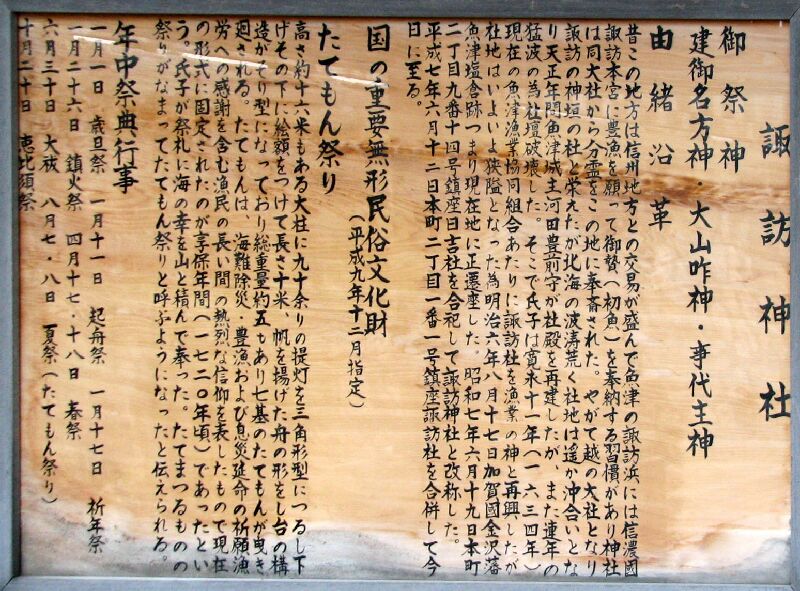 諏訪神社
御祭神
建御名方神・大山咋神・事代主神
由緒沿革
昔この地方は信州地方との交易が盛んで魚津の諏訪浜には信濃國
諏訪本宮に豊漁を願って御贄(初魚)を奉納する習慣があり神社
は同大社から分霊をこの地に奉斎された。やがて越の大社となり
諏訪の神垣の社と栄えたが北海の波涛荒く社地は遥か沖合いとな
り天正年間魚津城主河田豊前守が社殿を再建したが、また連年の
猛波の為社壇破壊した。そこで氏子は寛永十一年(一六三四年)
現在の魚津漁業協同組合あたりに諏訪社を漁業の神と再興したが
社地はいよいよ狭隘となった為明治六年八月十七日加賀國金沢藩
魚津塩倉跡つまり現在地に正遷座した。昭和七年六月十九日本町
二丁目九番十四号鎮座日吉社を合祀して諏訪神社と改称した。
平成七年六月十二日本町二丁目一番一号鎮座諏訪社を合併して今
日に至る。
国の重要無形民俗文化財
(平成九年十二月指定)
たてもん祭り
高さ約十六米もある大柱に九十余りの提灯を三角形型につるし下
げその下に絵額をつけて長さ十米、帆を揚げた舟の形をし台の構
造がそり型になっており総重量約五もあり七基のたてもんが曳き
廻される。たてもんは、海難除災、豊漁および息災延命の祈願漁
労への感謝を含む漁民の長い間の熱烈な信仰を表したもので現在
の形式に固定されたのが享保年間(一七二〇年頃)であったとい
う。氏子が祭礼に海の幸を山と積んで奉った。たてまつるものの
祭りがなまってたてもん祭りと呼ぶようになったと伝えられる。
年中祭典行事
一月一日 歳旦祭 一月十一日 起舟祭 一月十七日 祈年祭
一月二十六日 鎮火祭 四月十七・十八日 春祭
六月三十日 大祓 八月七・八日 夏祭(たてもん祭り)
十月二十日 恵比須祭